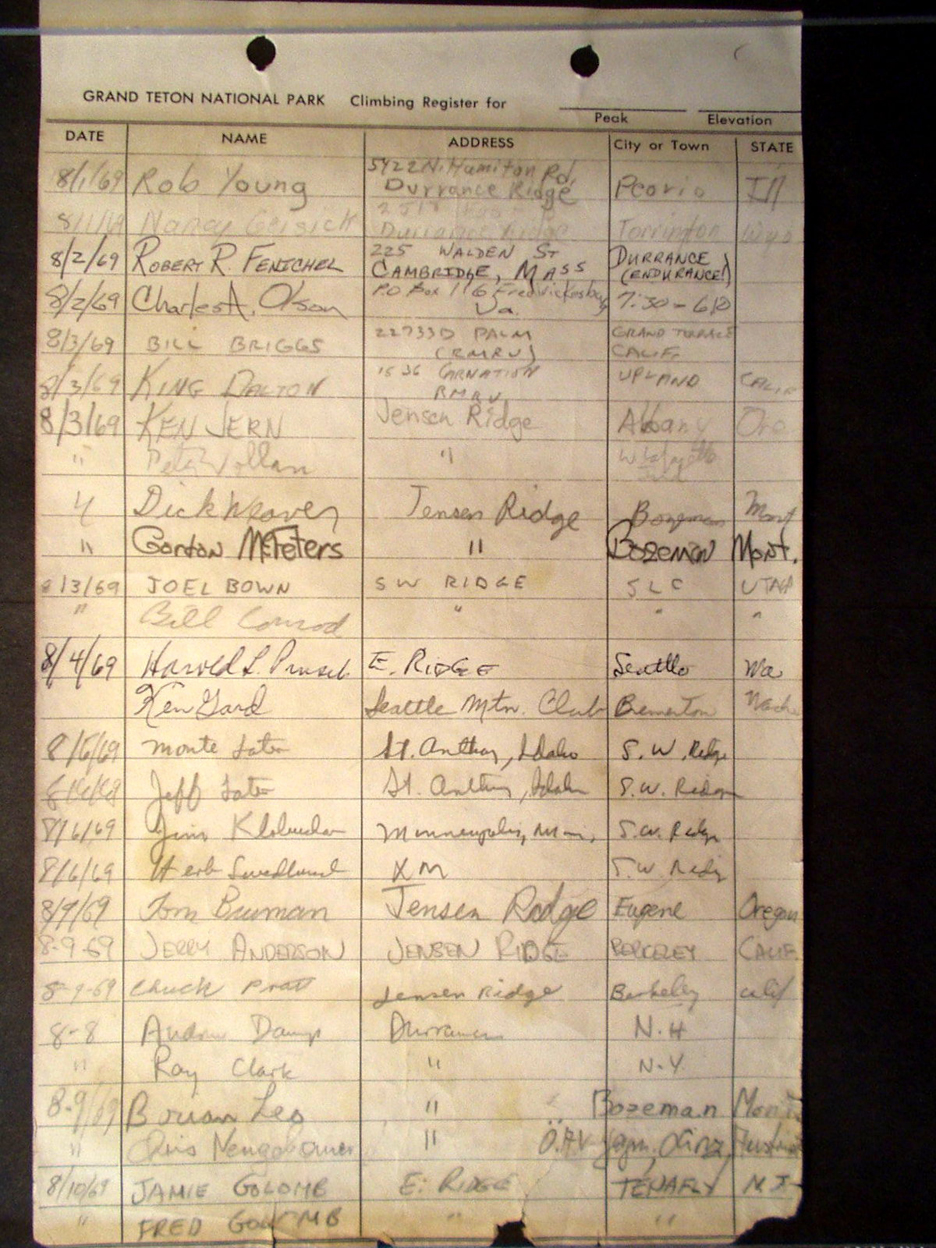 GRAND TETON NATIONAL PARK Climbing Register for
Peak Elevation
DATE NAME ADDRESS City or Town STATE
8/1/69 Rob Young 5422 N. Hamilton Rd. Durrance Ridge Peoria Ill
8/1/69 Nancy Durrance Ridge Torrington Wyo
8/2/69 ROBERT R. FENICHEL 225 WALDEN ST CAMBRIDGE, MASS DURRANCE (ENDURANCE!)
8/2/69 Charles A. Olson PO Box 116 Fredricksburg Va. 7:30 - 6:10
8/3/69 BILL BRIGGS 22733D PALM (RMRU) GRAND TERRACE CALIF
8/3/69 KING DALTON 1536 CARNATION RMRU UPLAND CALIF
8/3/69 KEN JERN Jensen Ridge Albany Ore
" Pete "
" Dick Weaver Jensen Ridge Bozeman Mont
" Gordon McFeters " BOZEMAN Mont.
8/3/69 JOEL BOWN SW RIDGE SLC UTAH
" Bill Conrod " " "
8/4/69 Harold L. E. RIDGE Seattle Wa
Ken Gard Seattle Mtn. Club Bremerton Wash
8/6/69 Monte Later St. Anthony, Idaho S.W. Ridge
Jeff Later St. Anthony, Idaho S.W. Ridge
8/6/69 Jim Klobuchar Minneapolis, S.W. Ridge
8/6/69 Herb Swedlund XM S.W. Ridge
8/7/69 Tom Bauman Jensen Ridge Eugene Oregon
8-9-69 JERRY ANDERSON JENSEN RIDGE BERKELEY CALIF.
8-9-69 Chuck Pratt Jensen Ridge Berkeley Calif
8-8 Durrance N.H
" Ray Clark " N.Y
8-9/69 Brian Leo " " Bozeman Mont
" Chris " Ö.A.V
8/10/69 JAMIE GOLOMB E. RIDGE TENAFLY N.J.
" FRED GOLOMB " "